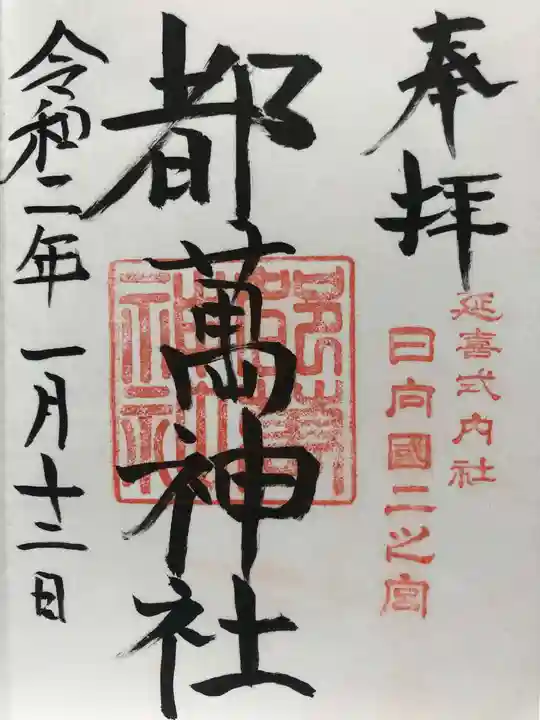 奉拝
延喜式内社
日向國二之宮
都萬神社
都萬神社
令和二年一月十二日